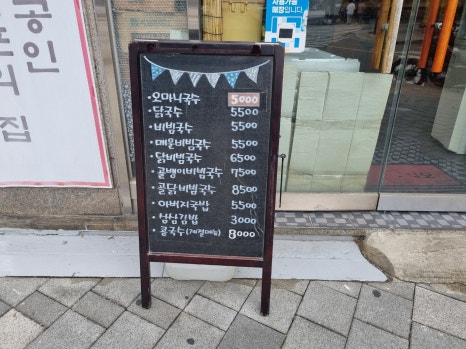 공인
의
집
사용가능
매장입니다
·오마니국수 5000
·닭국수 5500
·비빔국수 5500
·매운비빔국수 5500
·닭비빔국수 6500
·골뱅이비빔국수 7500
·골닭비빔국수 8500
·아버지국밥 5500
·삼삼김밥 3000
·콩국수(계절메뉴) 8000